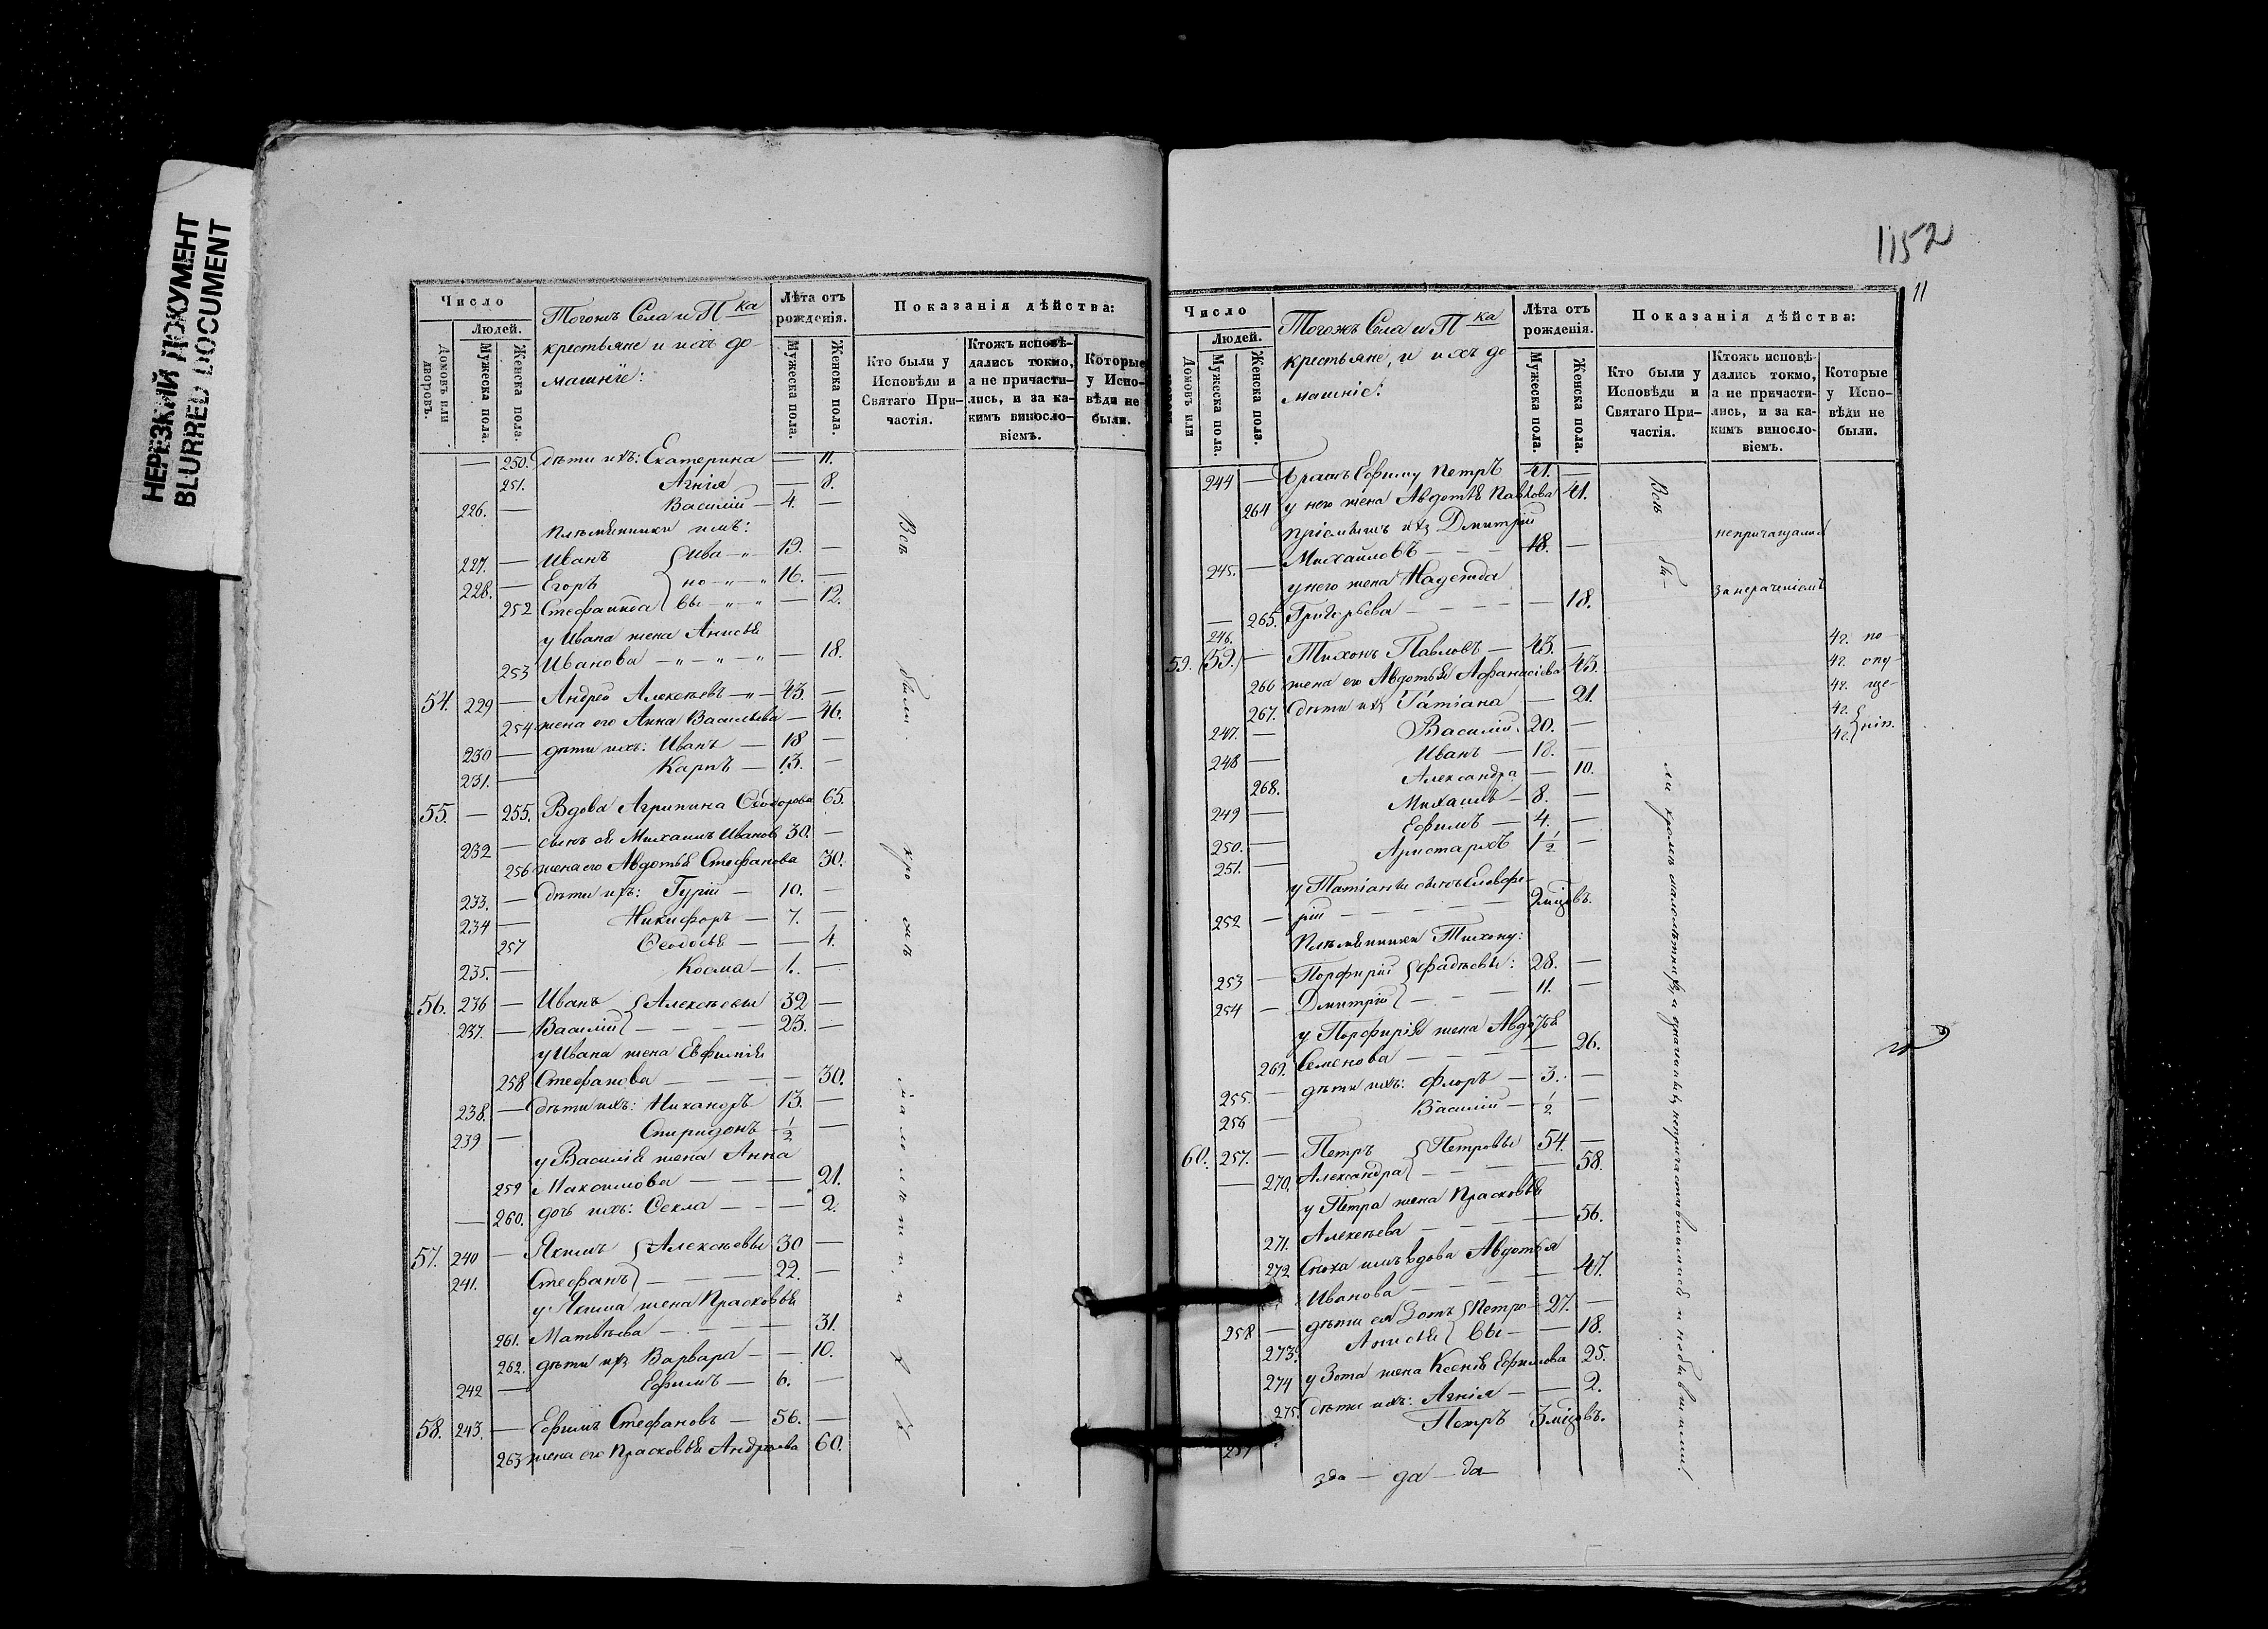 НЕРЕЗКИЙ ДОКУМЕНТ
BLURRED DOCUMENT
Число
Людей.
Домовъ или дворовъ.
Мужеска пола.
Женска пола.
Тогожъ Села и П ка
крестьяне и ихъ до-
машніе:
Лѣта отъ рожденія.
Мужеска пола.
Женска пола.
Показанія дѣйства:
Кто были у Исповѣди и Святаго При-частія.
Ктожъ исповѣ-дались токмо, а не причасти-лись, и за ка-кимъ винословіемъ.
Которые у Испо-вѣди не были.
— 250. дѣти ихъ: Екатерина — 11.
251. Агнія — 8.
226. — Василій — 4. —
Племянники имъ:
227. — Иванъ { Ива — 19. —
228. — Егоръ { но — 16. —
252 Стефанида { вы — — 12.
у Ивана жена Анисья
253 Иванова — — 18.
54. 229 — Андрей Алексѣевъ — 43. —
254 жена его Анна Васильева — 46.
230 — дѣти ихъ: Иванъ — 18 —
231. — Карпъ — 13. —
55. — 255. Вдова Агрипина Ѳеодорова 65.
232 — сынъ ея Михаилъ Иванов 30. —
256 жена его Авдотья Стефанова 30.
233. — дѣти ихъ: Гурій — 10. —
234 — Никифоръ — 7. —
257 Ѳеодосья — — 4.
235. — Косма — 1. —
56. 236 — Иванъ { Алексѣевы 32 —
237. — Василій { — 23. —
у Ивана жена Евфимія
258 Стефанова — 30.
238. — дѣти ихъ: Никаноръ 13. —
239 — Спиридонъ — 1/2 —
у Василія жена Анна
259 Максимова — 21.
— 260. дочь ихъ: Ѳекла — 2.
57. 240 — Якимъ { Алексѣевы 30 —
241. Стефанъ { — 22. —
у Якима жена Прасковья
261. Матвѣева — 31.
262. дѣти ихъ Варвара — 10.
242 — Ефимъ — 6. —
58. 243. — Ефимъ Стефановъ — 56. —
263 жена его Прасковья Андреева 60.
Всѣ были кромѣ малолѣтнихъ
1152
11
Число
Людей.
Домовъ или
Мужеска пола.
Женска пола.
Тогожъ Села и П ка
крестьяне, и ихъ до
машніе:
Лѣта отъ рожденія.
Мужеска пола.
Женска пола.
Показанія дѣйства:
Кто были у Исповѣди и Святаго При-частія.
Ктожъ исповѣ-дались токмо, а не причасти-лись, и за ка-кимъ винословіемъ.
Которые у Испо-вѣди не были.
244 — братъ Ефиму Петръ 41. —
264 у него жена Авдотья Павлова 41.
пріемышъ ихъ Дмитрій
245. — Михайловъ — 18. —
у него жена Надежда
— 265. Григорьева — — 18.
246.
59. (59.) — Тихонъ Павловъ — 43. —
266 жена его Авдотья Афанасіева 43.
267. дѣти ихъ Татіана — 21.
247. — Василій 20. —
248 — Иванъ — 18. —
268. Александра — 10.
249 — Михаилъ — 8. —
250. — Ефимъ — 4. —
251. — Аристархъ 1 1/2 —
у Татіаны сынъ Елевфе-
252 — рій — 2 мцовъ.
Племянники Тихону:
253 — Порфирій { Фадѣевы: 28. —
254 — Дмитрій { — 11. —
у Порфирія жена Авдотья
269. Семенова — 26.
255. — дѣти ихъ: Флоръ — 3. —
256 — Василій — 1/2 —
60. 257. — Петръ { Петровы 54. —
— 270. Александра { — 58.
у Петра жена Прасковья
271. Алексѣева — 56.
272 Сноха имъ вдова Авдотья
Иванова — 47.
258 — дѣти ея Зотъ { Петро- 27. —
273. Анисья { вы — — 18.
274 у Зота жена Ксенія Ефимова 25.
275. дѣти ихъ: Агнія — 2.
Петръ 3 мцовъ.
Всѣ бы-
ли кромѣ малолѣтнихъ, а означенныхъ непричастившимися и небывшими!
непричащался
за нераченіемъ
42. по-
42. опу-
42. ще-
42.
42. } нію.